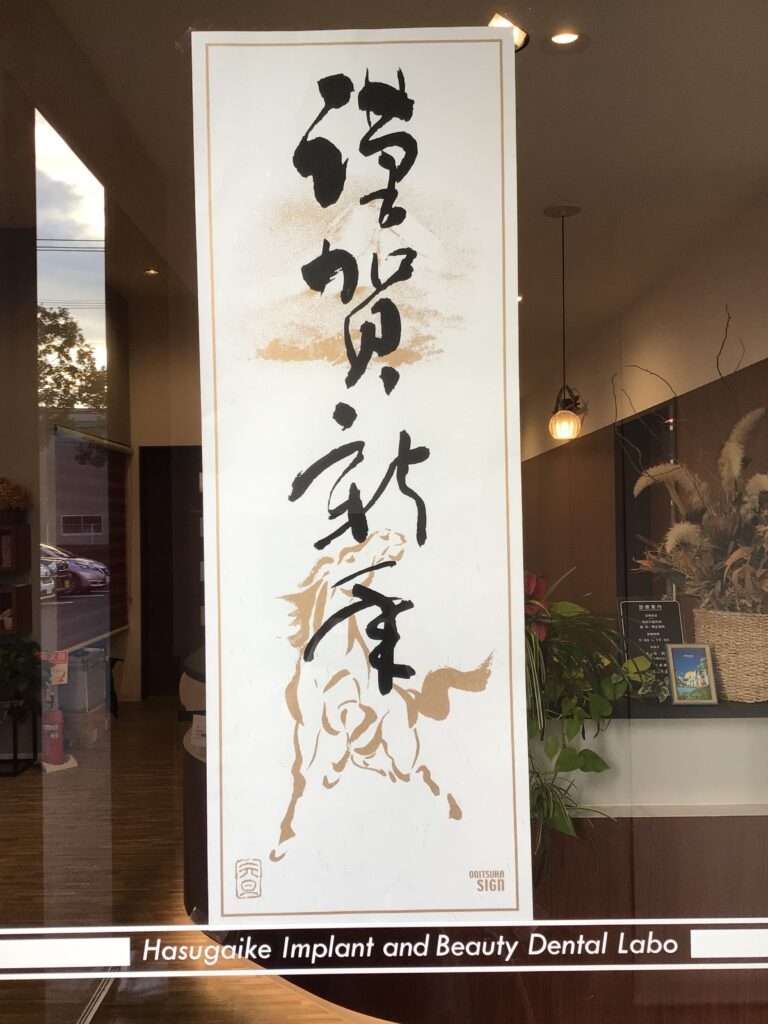 謹賀新年
元旦
OBITSUKA
SIGN
診療案内
9:00～19:00
Hasugaike Implant and Beauty Dental Labo